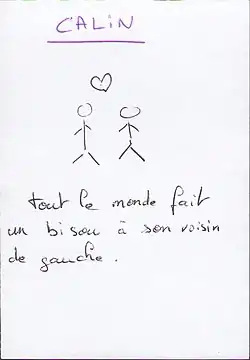 CALIN
tout le monde fait
un bisou à son voisin
de gauche.